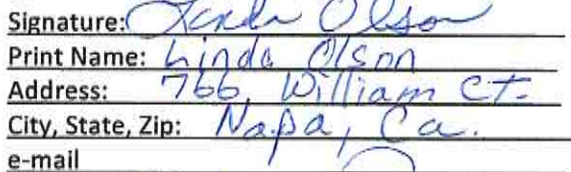 Signature: Linda Olson
Print Name: Linda Olson
Address: 766, William Ct.
City, State, Zip: Napa, Ca.
e-mail